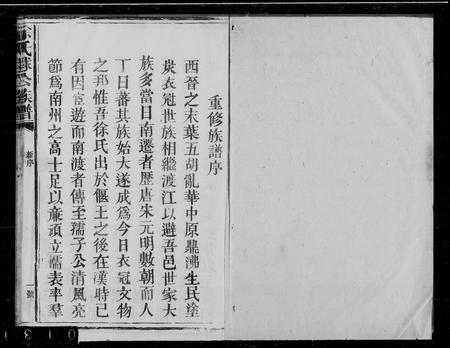 重修族譜序
西晉之末葉五胡亂華中原鼎沸生民塗
炭衣冠世族相繼渡江以避吾邑世家大
族多當日南遷者歷唐宋元明數朝而人
丁日蕃其族始大遂成爲今日衣冠文物
之邦惟吾徐氏出於偃王之後在漢時已
有因宦遊而南渡者傳至孺子公清風亮
節爲南州之高士足以亷頑立懦表率羣
族譜
新序
一號
0 1 3